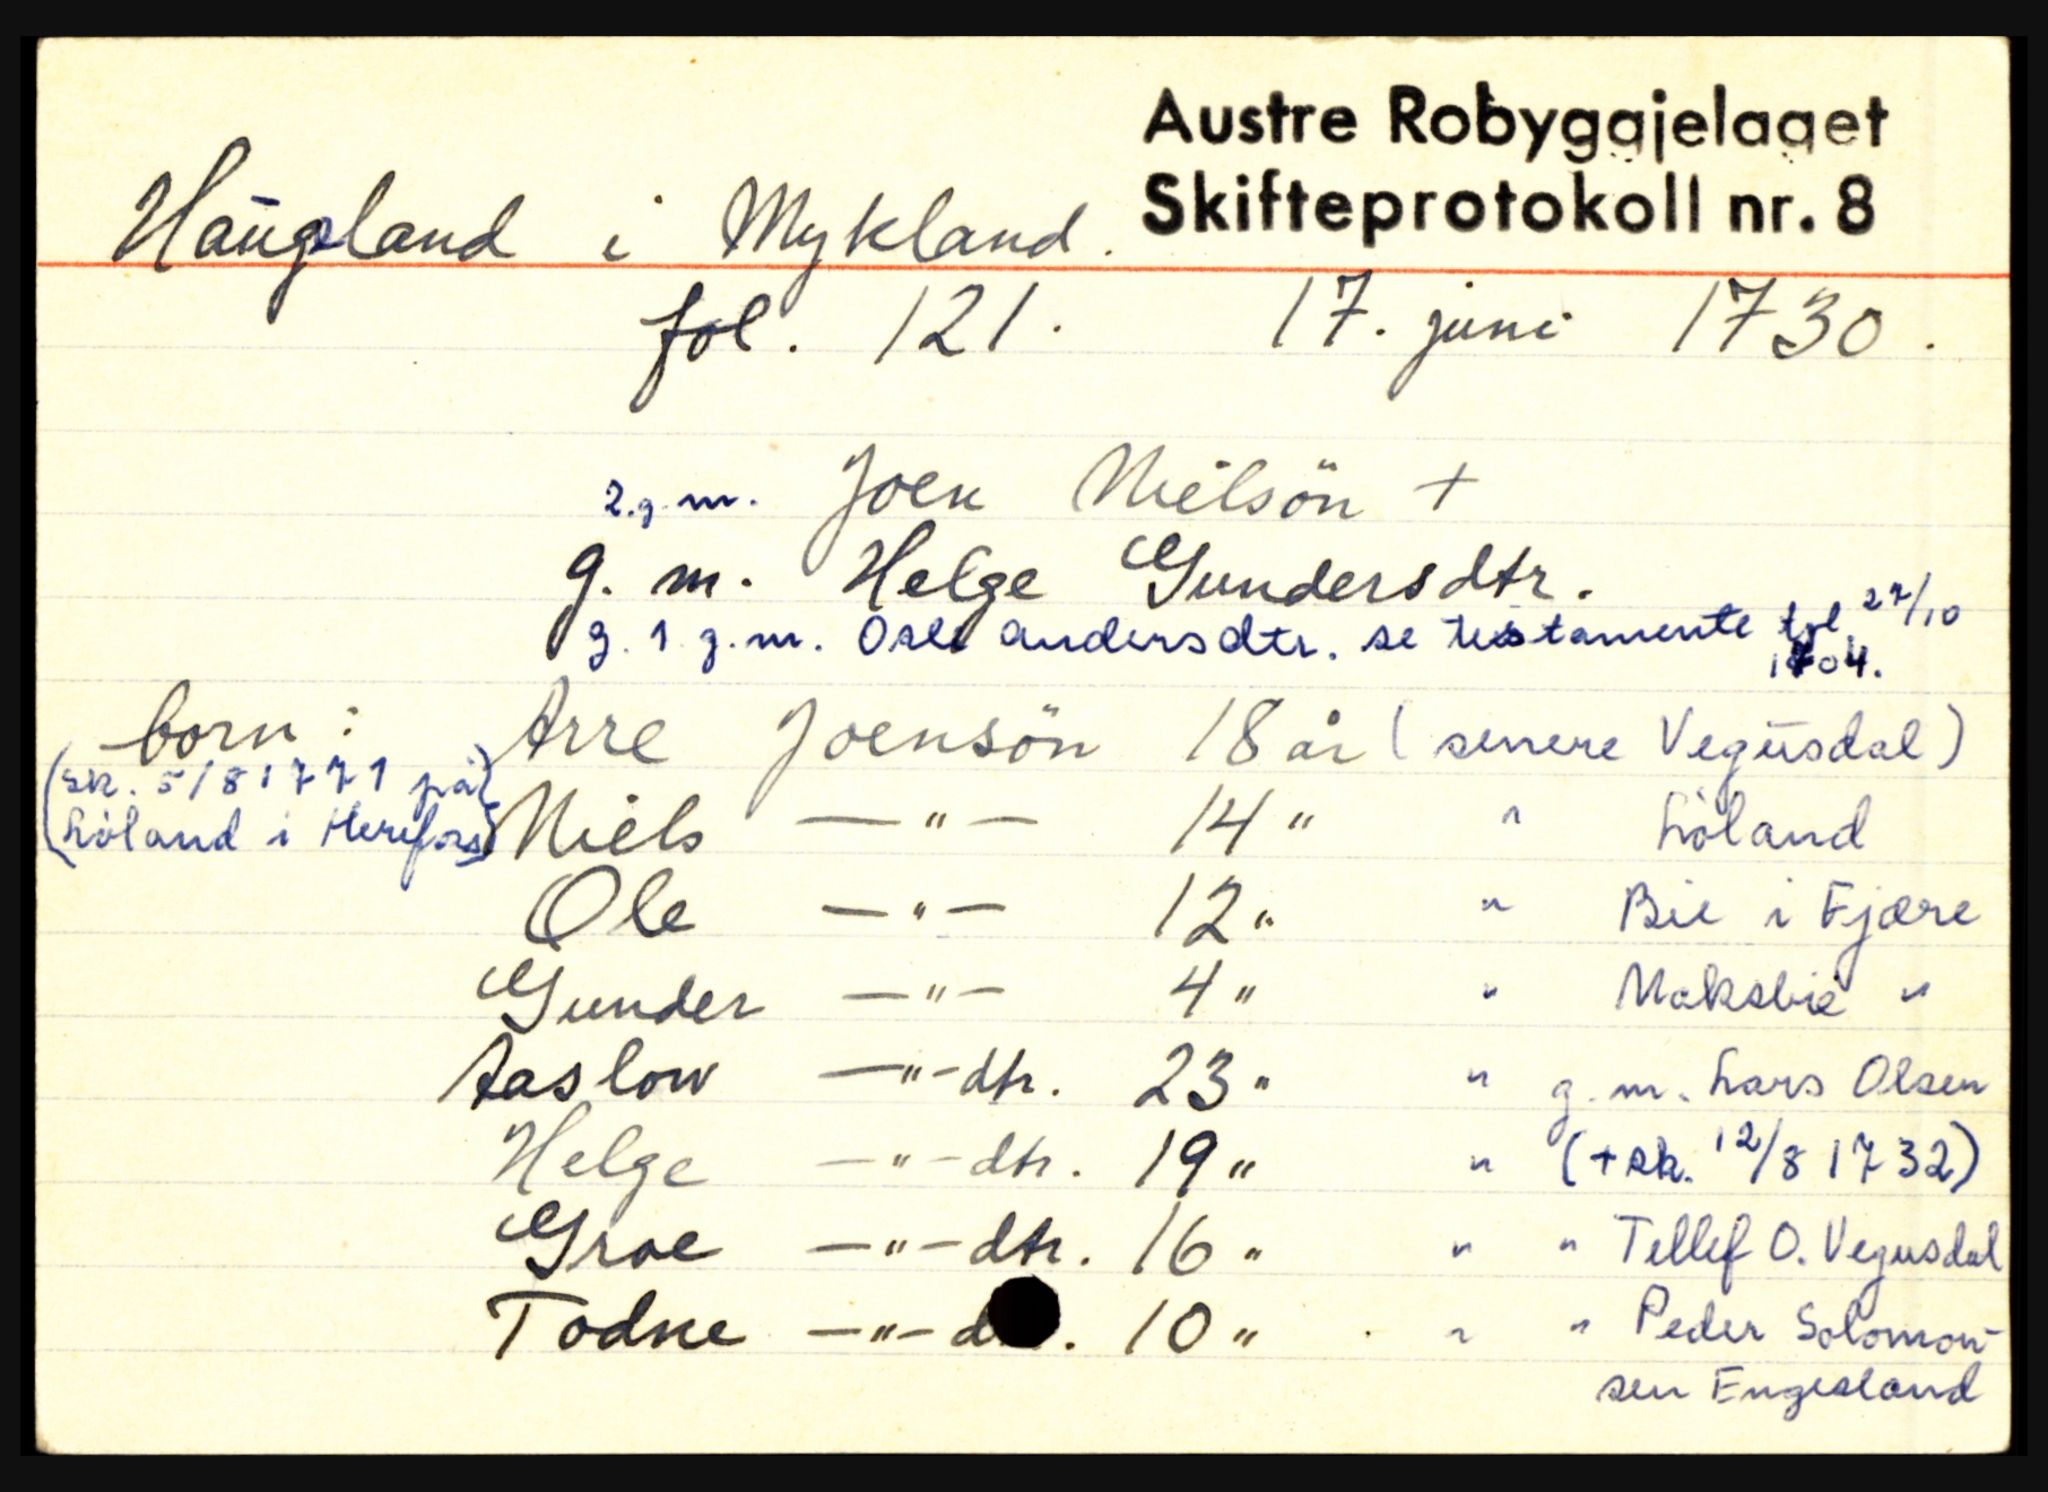 Austre Robyggjelaget
Skifteprotokoll nr. 8
Haugsland i Mykland.
fol. 121. 17. juni 1730.
2.g.m. Joen Nielsön +
g. m. Helge Gundersdtr.
g. 1 g.m. Osle andersdtr. se testamente fol. 27/10
1704.
born: Arre Joensön 18 år (senere Vegusdal)
(sk. 5/8 1771 på
Löland i Herefoss) Niels —"— 14 " " Löland
Ole —"— 12 " " Bie i Fjære
Gunder —"— 4 " " Moksbie "
Aaslow —"—dtr. 23 " " g.m. Lars Olsen
Helge —"—dtr. 19 " " (+ sk. 12/8 1732)
Groe —"—dtr. 16 " " " Tellef O. Vegusdal
Todne —"—d . 10 " " " Peder Solomon-
sen Engesland